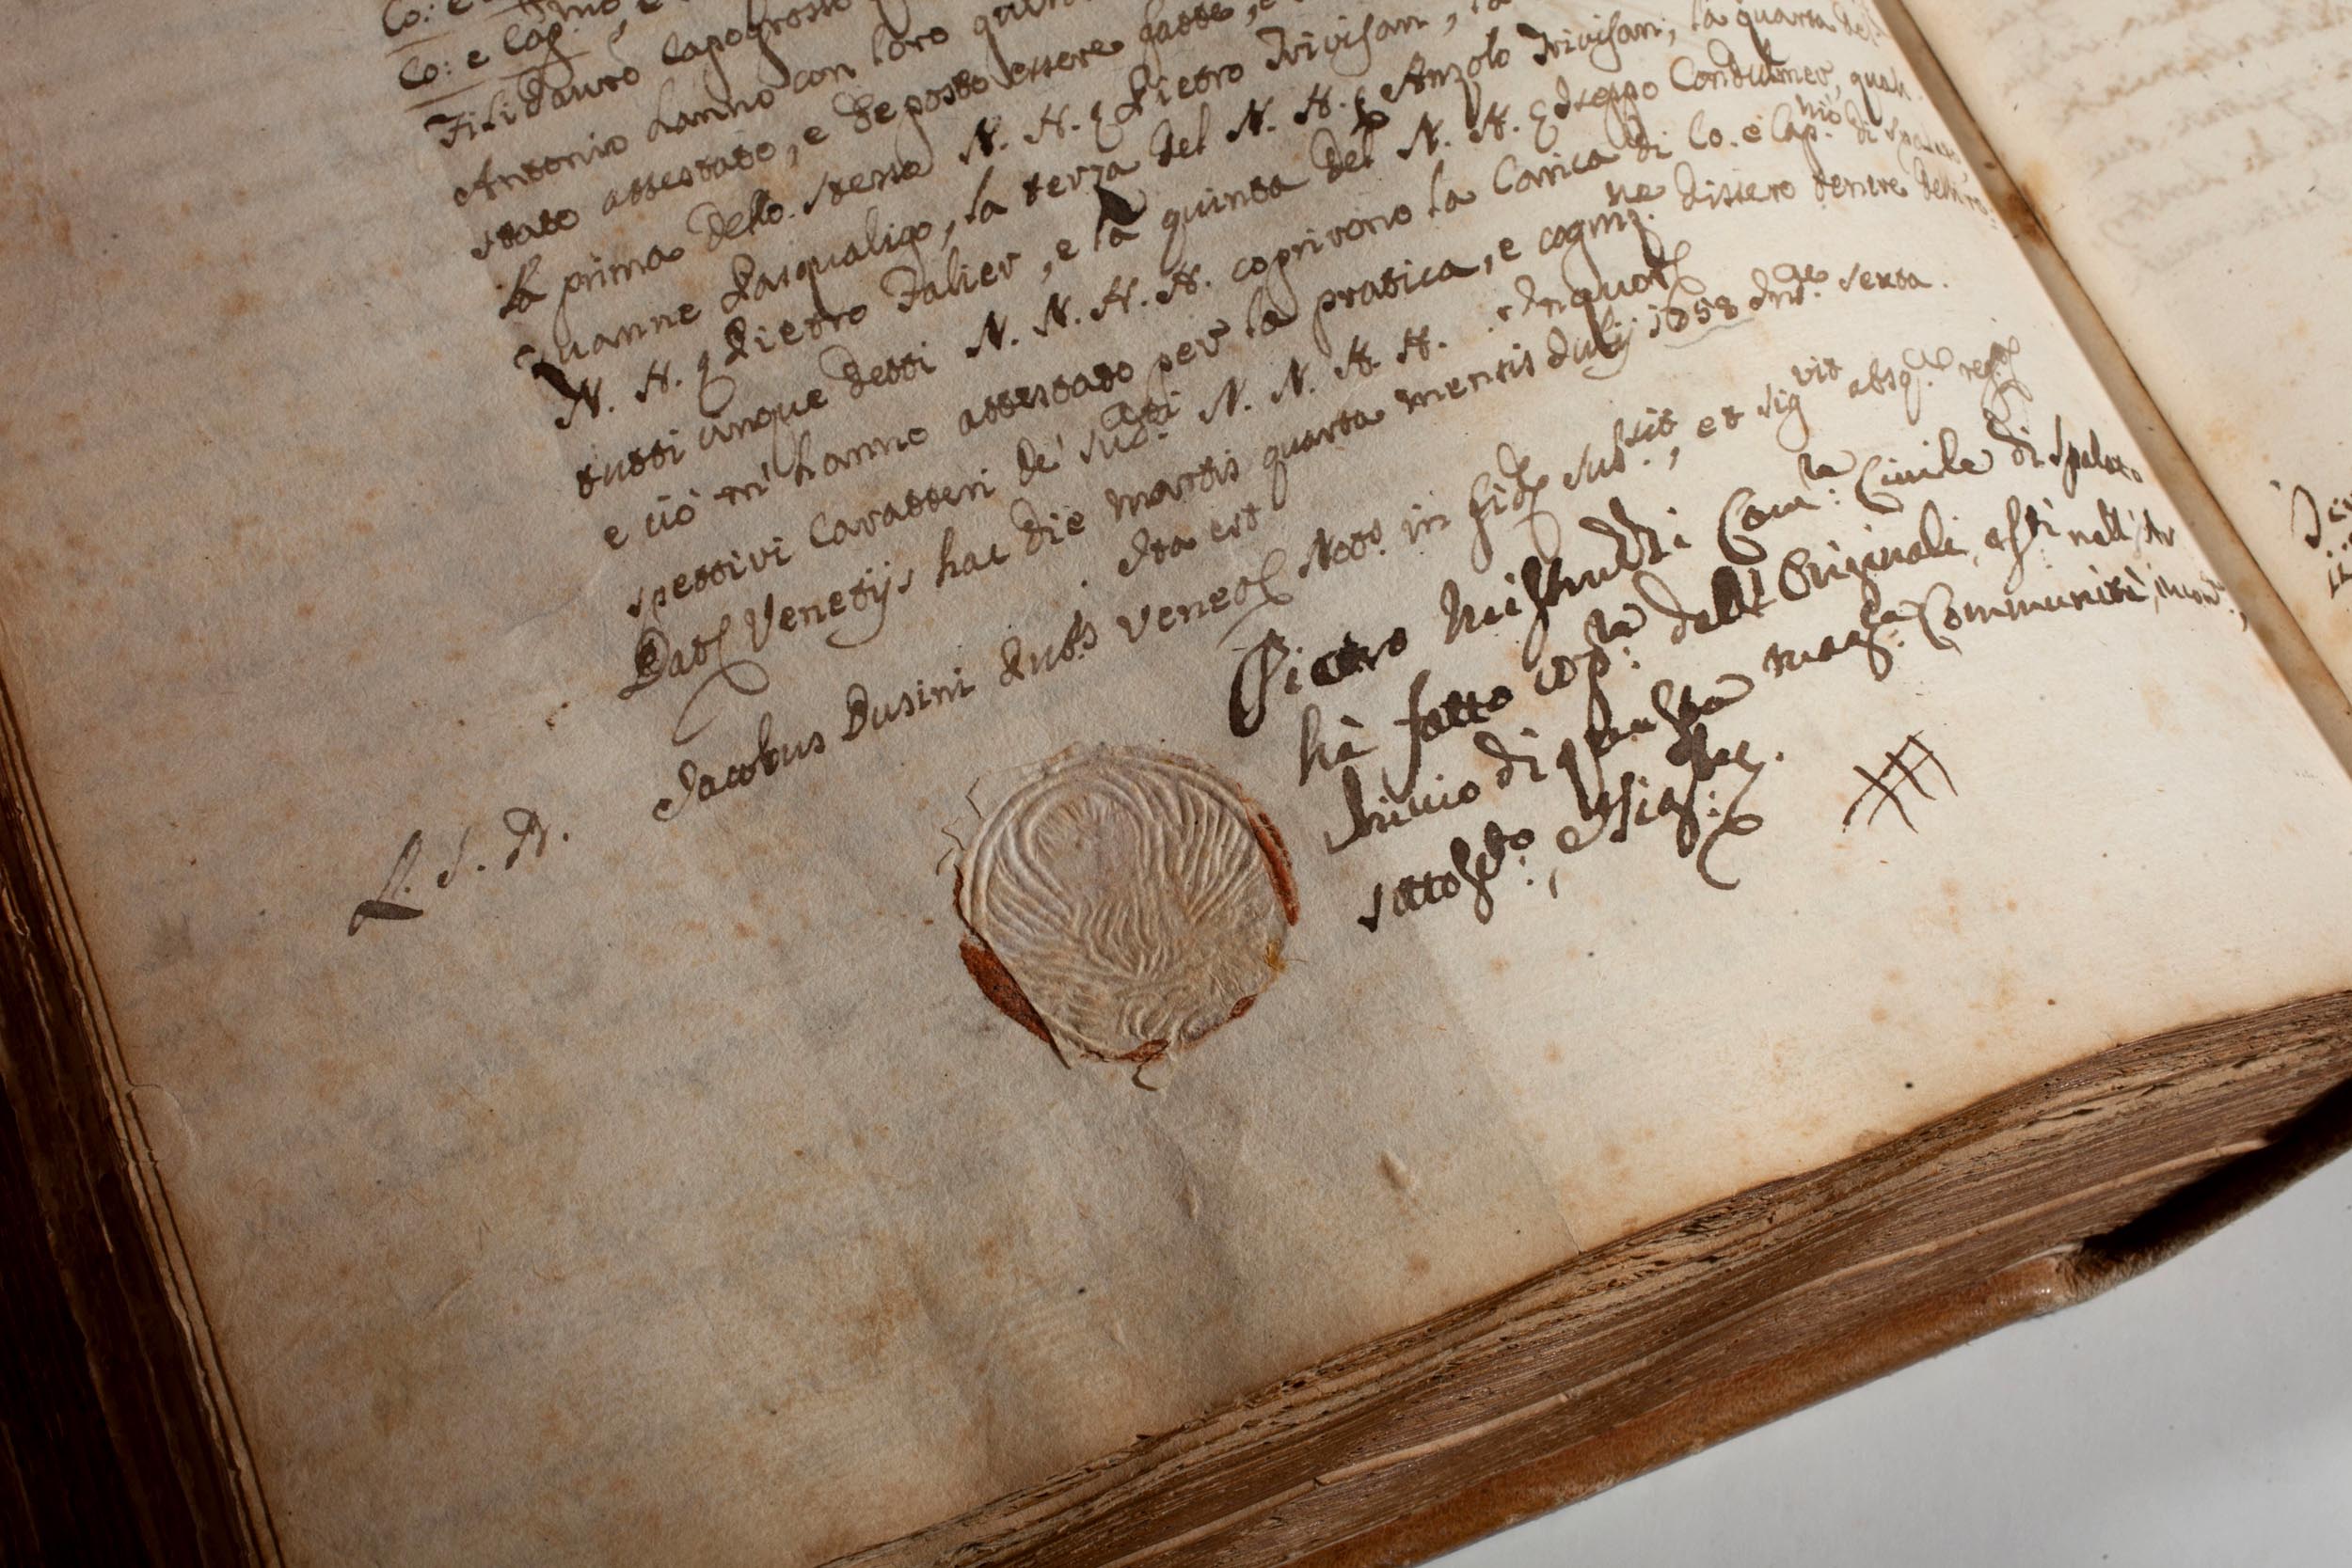 Co: e
Co: e Cap.
Fili Dauro Capogrosso
Antonio hanno con loro
stato attestato, e deposto essere fatte, e
La prima dello stesso N. H. q Pietro Trivisan, la
Zuanne Pasqualigo, la terza del N. H. q Anzolo Trivisan; la quarta del
N. H. q Pietro Valier, e la quinta del N. H. q Iseppo Condulmer, quali
tutti cinque detti N. N. H. H. coprirono la Carica di Co. e Cap.nio di Spalato,
e ciò m' hanno attestato per la pratica, e cogniz.ne dissero tenere delli
spettivi Caratteri de' sud.tti N. N. H. H. In quor
Dat Venetijs hac die martis quarta mensis Julij 1658 Ind.ne sexta.
Ita est
L. S. N. Jacobus Busini Pub.s Venet Not.s in fide sub.sit, et sig.vit absq.
Pietro Can.ria Civile di Spalato
hà fatto cop.ia dall' Originali, esti nell' Ar
chivio di questa mag.ca Communità,
sottosc.to, e sig.